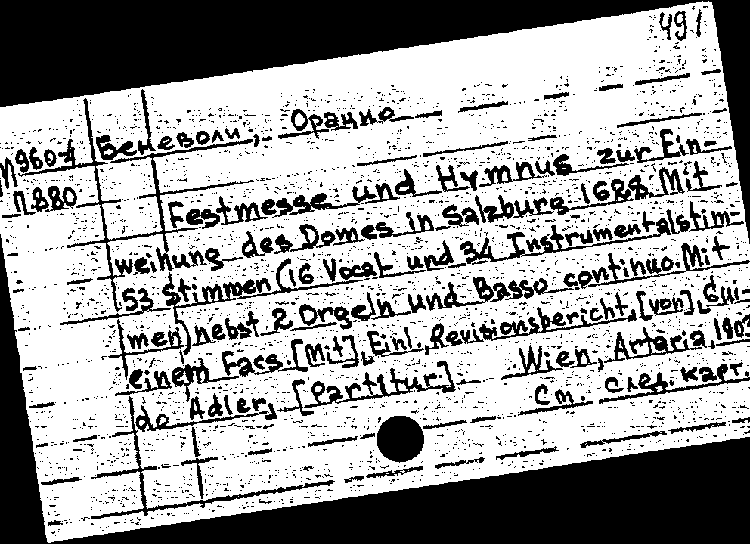 491
Беневоли, Орацио
П.880
Festmesse und Hymnus zur Ein-
weihung des Domes in Salzburg 1628. Mit
53 Stimmen (16 Vocal- und 34 Instrumentalstim-
men) nebst 2 Orgeln und Basso continuo. Mit
einem Facs. [Mit] Einl., Revisionsbericht, [von] Gui-
do Adler, [Partitur]. Wien, Artaria, 1903
См. след. карт.